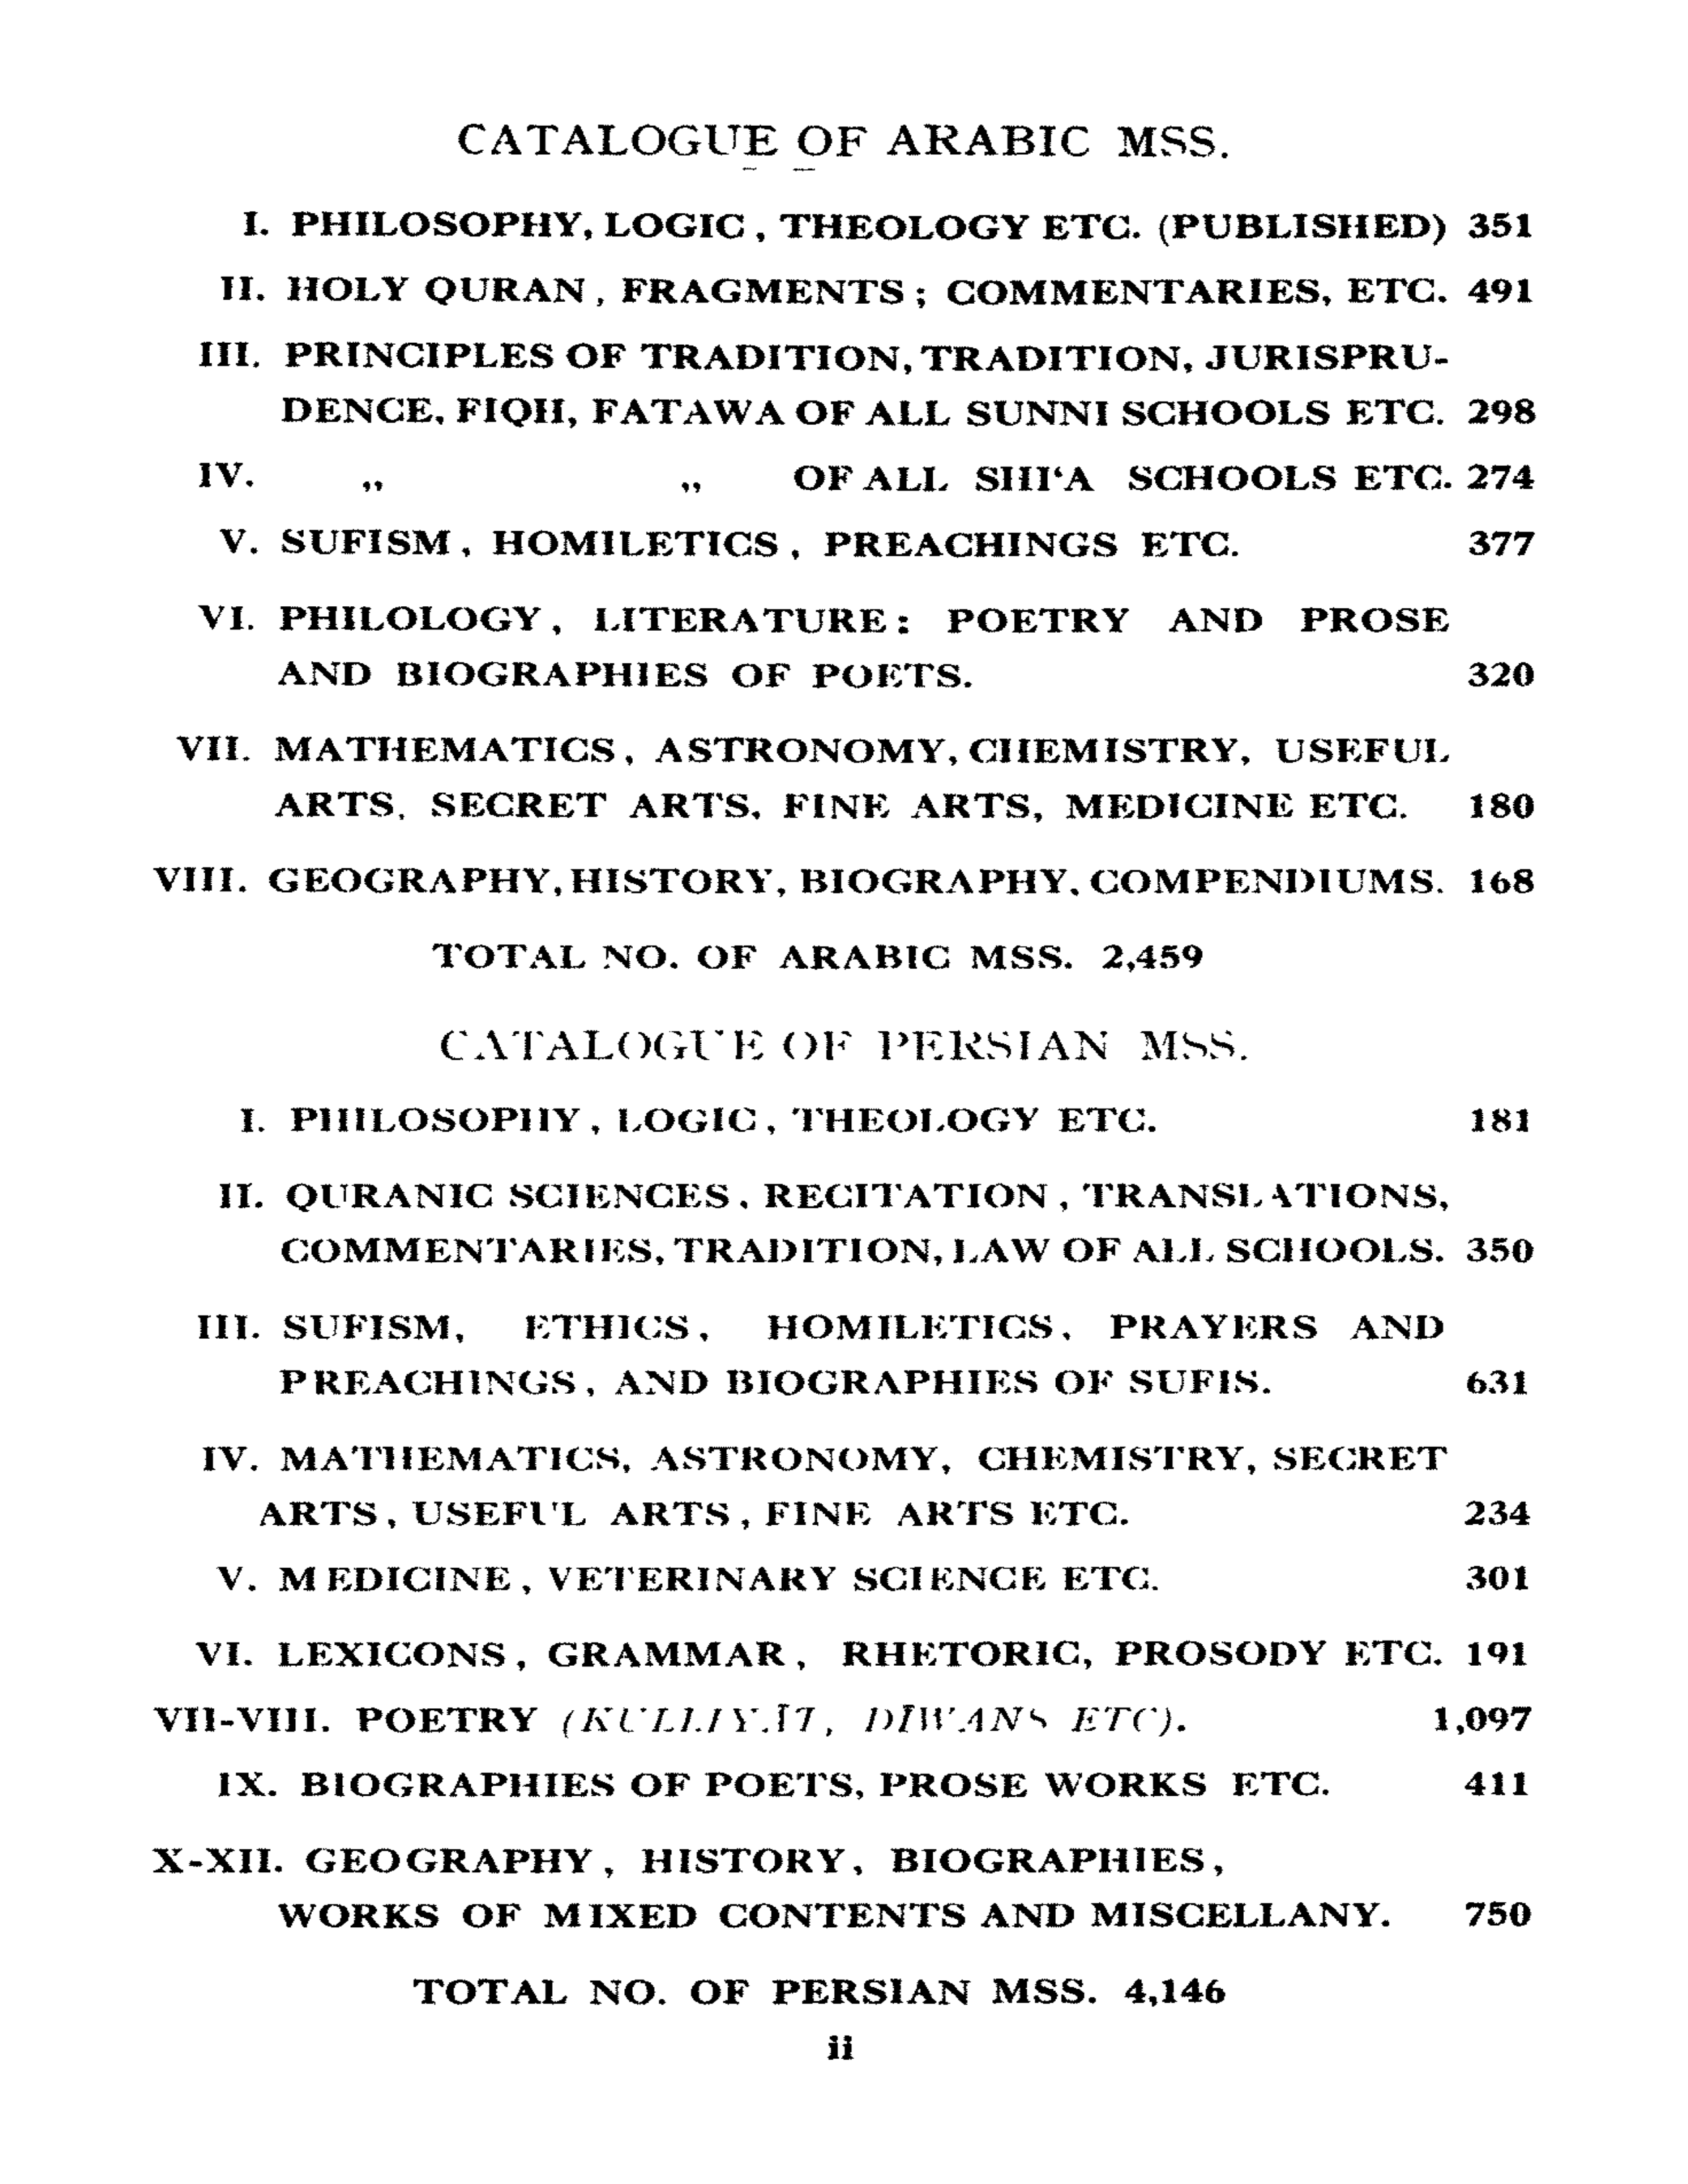 CATALOGUE OF ARABIC MSS.
I. PHILOSOPHY, LOGIC, THEOLOGY ETC. (PUBLISHED) 351
II. HOLY QURAN, FRAGMENTS; COMMENTARIES, ETC. 491
III. PRINCIPLES OF TRADITION, TRADITION, JURISPRU-
DENCE, FIQH, FATAWA OF ALL SUNNI SCHOOLS ETC. 298
IV. „ „ OF ALL SHI‘A SCHOOLS ETC. 274
V. SUFISM, HOMILETICS, PREACHINGS ETC. 377
VI. PHILOLOGY, LITERATURE: POETRY AND PROSE
AND BIOGRAPHIES OF POETS. 320
VII. MATHEMATICS, ASTRONOMY, CHEMISTRY, USEFUL
ARTS, SECRET ARTS, FINE ARTS, MEDICINE ETC. 180
VIII. GEOGRAPHY, HISTORY, BIOGRAPHY, COMPENDIUMS. 168
TOTAL NO. OF ARABIC MSS. 2,459
CATALOGUE OF PERSIAN MSS.
I. PHILOSOPHY, LOGIC, THEOLOGY ETC. 181
II. QURANIC SCIENCES, RECITATION, TRANSLATIONS,
COMMENTARIES, TRADITION, LAW OF ALL SCHOOLS. 350
III. SUFISM, ETHICS, HOMILETICS, PRAYERS AND
PREACHINGS, AND BIOGRAPHIES OF SUFIS. 631
IV. MATHEMATICS, ASTRONOMY, CHEMISTRY, SECRET
ARTS, USEFUL ARTS, FINE ARTS ETC. 234
V. MEDICINE, VETERINARY SCIENCE ETC. 301
VI. LEXICONS, GRAMMAR, RHETORIC, PROSODY ETC. 191
VII-VIII. POETRY (KULLIYĀT, DĪWANS ETC). 1,097
IX. BIOGRAPHIES OF POETS, PROSE WORKS ETC. 411
X-XII. GEOGRAPHY, HISTORY, BIOGRAPHIES,
WORKS OF MIXED CONTENTS AND MISCELLANY. 750
TOTAL NO. OF PERSIAN MSS. 4,146
ii